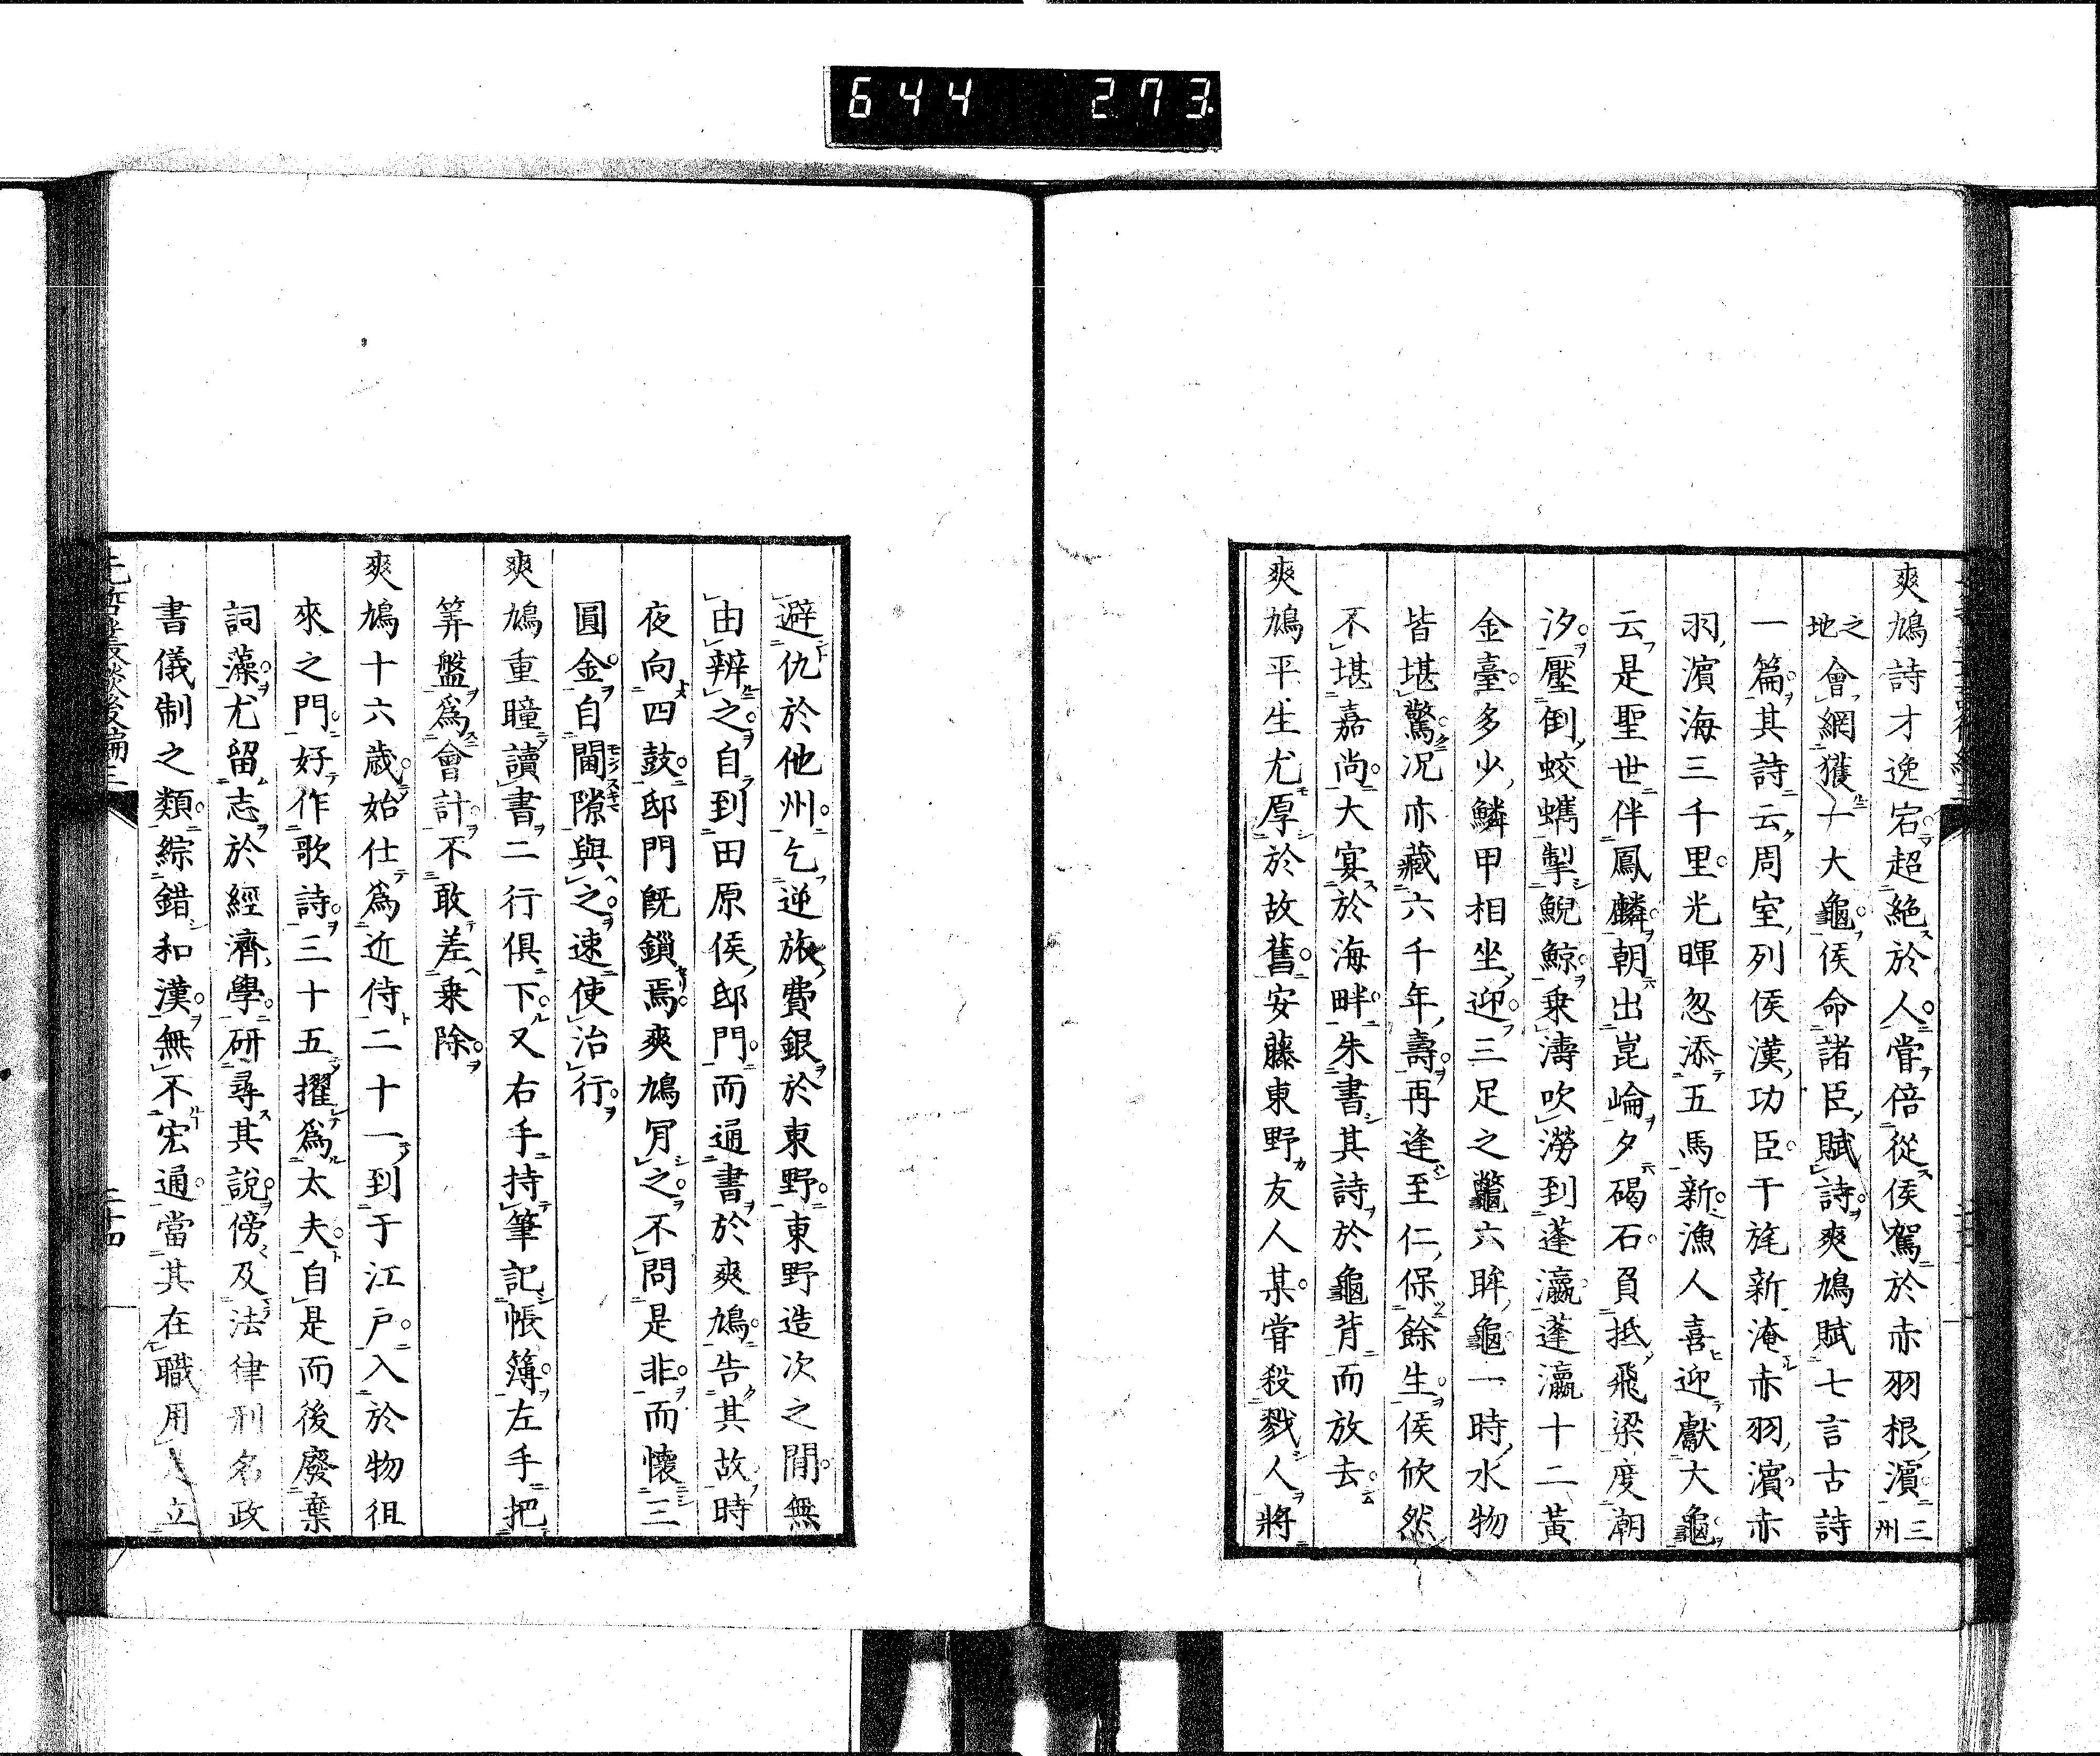 644 273
爽鳩詩才逸宕超絶於人嘗倍從侯駕於赤羽根濵三州
之地會網獲一大龜侯命諸臣賦詩爽鳩賦七言古詩
一篇其詩云周室列侯漢功臣干旄新淹赤羽濵赤
羽濵海三千里光暉忽添五馬新漁人喜迎獻大龜
云是聖世伴鳳麟朝出崑崘夕碣石負抵飛梁度潮
汐壓倒蛟螭掣鯢鯨乗濤吹澇到蓬瀛蓬瀛十二黃
金臺多少鱗甲相坐迎三足之鼈六眸龜一時水物
皆堪驚況亦藏六千年壽再逢至仁保餘生侯欣然
不堪嘉尚大宴於海畔朱書其詩於龜背而放去
爽鳩平生尤厚於故舊安藤東野友人某嘗殺戮人將
避仇於他州乞逆旅費銀於東野東野造次之間無
由辨之自到田原侯邸門而通書於爽鳩告其故時
夜向四鼓邸門既鎖焉爽鳩肎之不問是非而懷三
圓金自閫隙與之速使治行
爽鳩重瞳讀書二行俱下又右手持筆記帳簿左手把
筭盤爲會計不敢差乗除
爽鳩十六歳始仕爲近侍二十一到于江戸入於物徂
來之門好作歌詩三十五擢爲太夫自是而後廢棄
詞藻尤留志於經濟學研尋其說傍及法律刑名政
書儀制之類綜錯和漢無不宏通當其在職用立
先哲叢談後編三 二十四